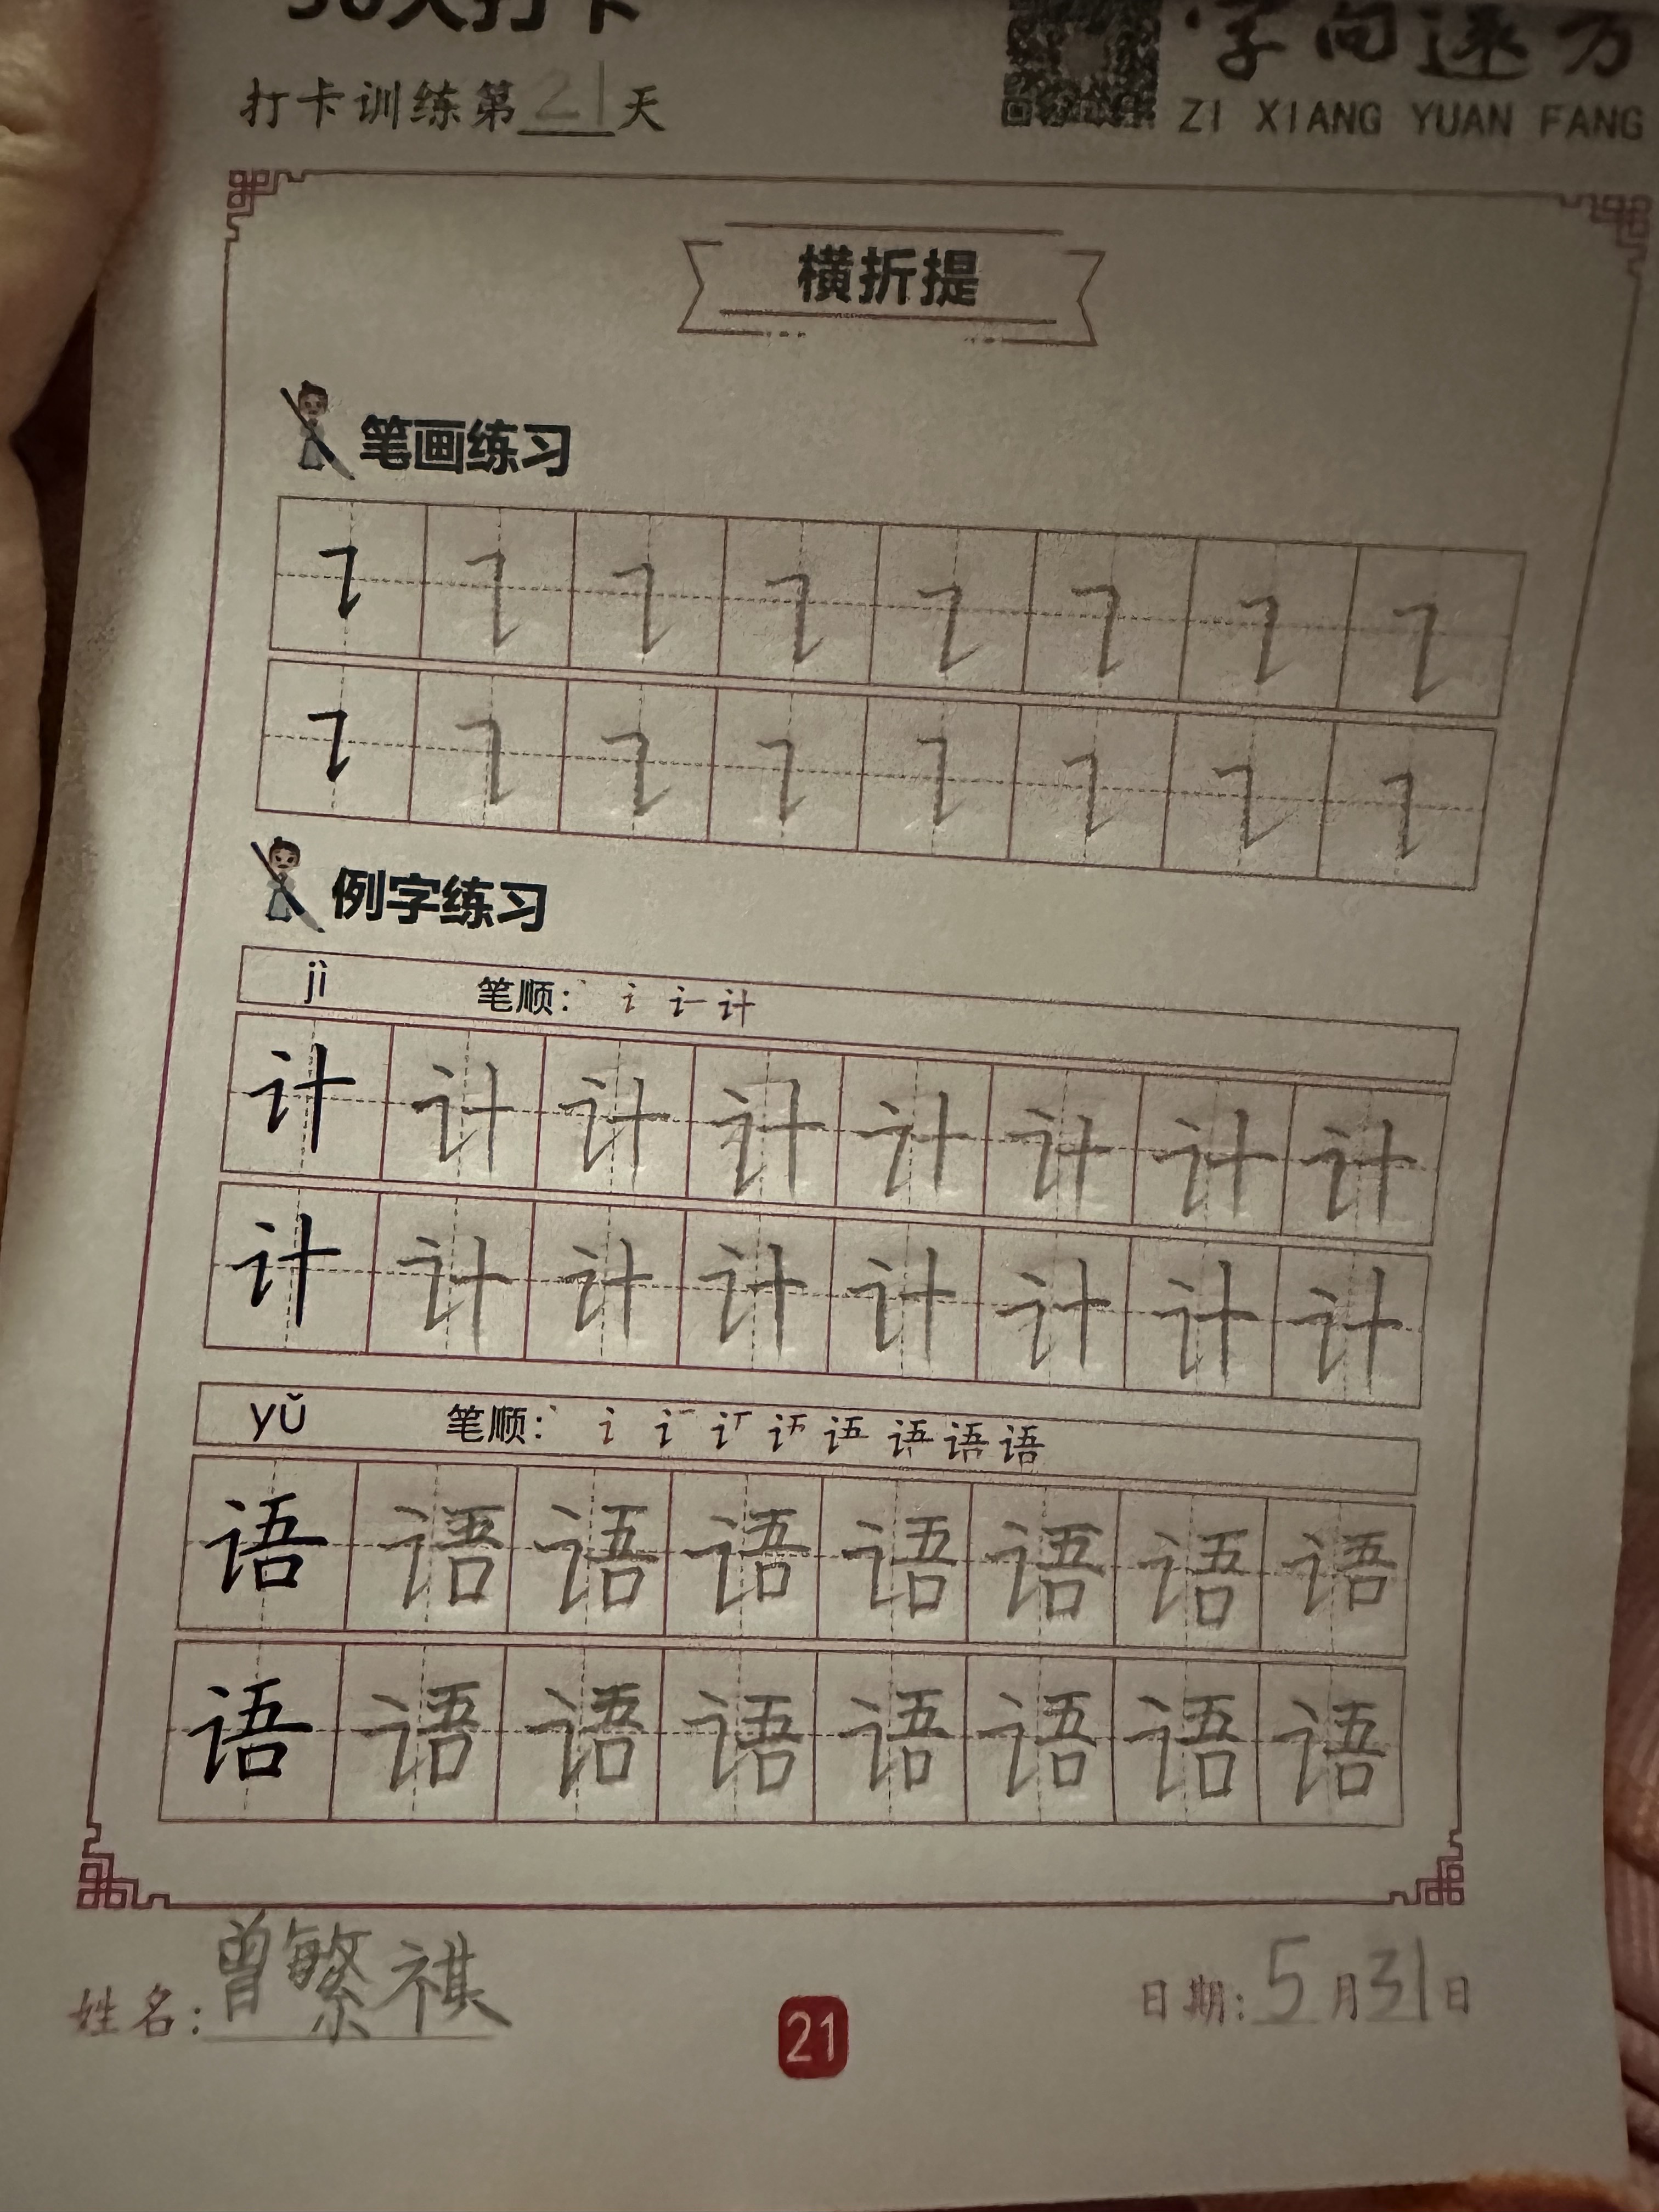 30天打卡
字向远方
打卡训练第21天
ZI XIANG YUAN FANG
横折提
笔画练习
㇊ ㇊ ㇊ ㇊ ㇊ ㇊ ㇊ ㇊
㇊ ㇊ ㇊ ㇊ ㇊ ㇊ ㇊ ㇊
例字练习
jì 笔顺: 丶 讠 计
计 计 计 计 计 计 计 计
计 计 计 计 计 计 计 计
yǔ 笔顺: 丶 讠 语
语 语 语 语 语 语 语 语
语 语 语 语 语 语 语 语
姓名: 曾繁祺
21
日期: 5月31日